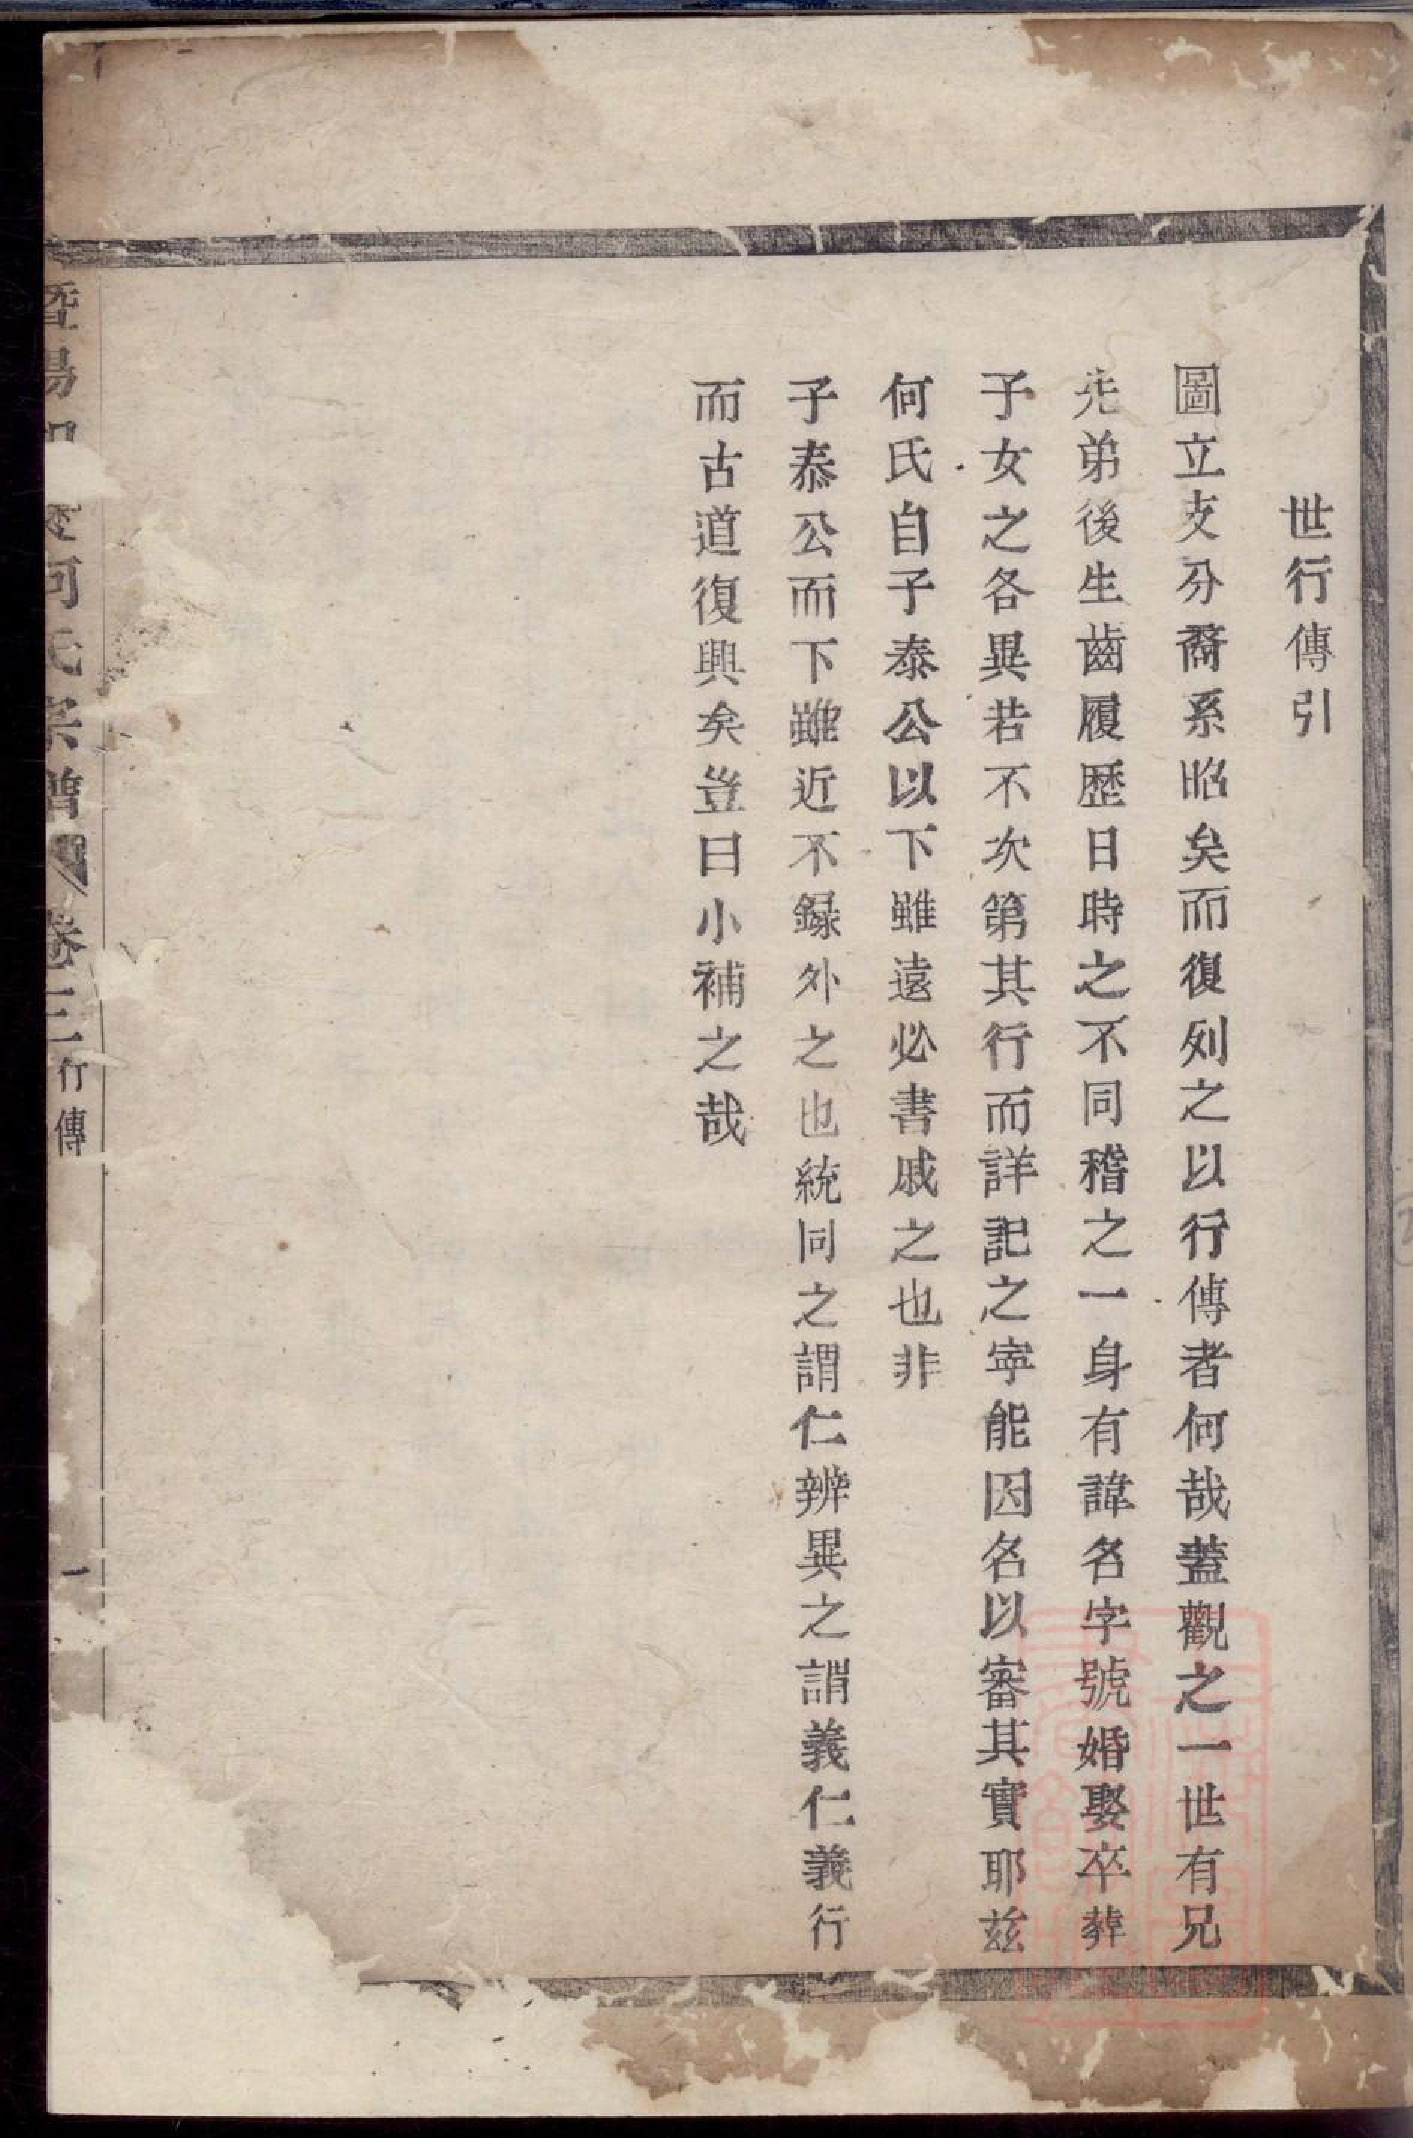 世行傳引
圖立支分裔系昭矣而復列之以行傳者何哉蓋觀之一世有兄
先弟後生齒履歷日時之不同稽之一身有諱名字號婚娶卒葬
子女之各異若不次第其行而詳記之寧能因名以審其實耶玆
何氏自子泰公以下雖遠必書戚之也非
子泰公而下雖近不錄外之也統同之謂仁辨異之謂義仁義行
而古道復興矣豈曰小補之哉
暨陽 何氏宗譜 卷三 行傳 一